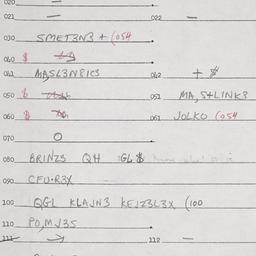 020
021 —
022 —
030 SMET3N3 + (054
040 $
041 MASL3N8ICS
042 + $
050 $
051 MA,S+LINK3
060 $
061 JOLKO (054
070 O
080 BRINZS QH GL$
090 CFU·R3X
100 QGL KLAJN3 KEJZ3L3X (100
110 PO,MJ35
111
112 —